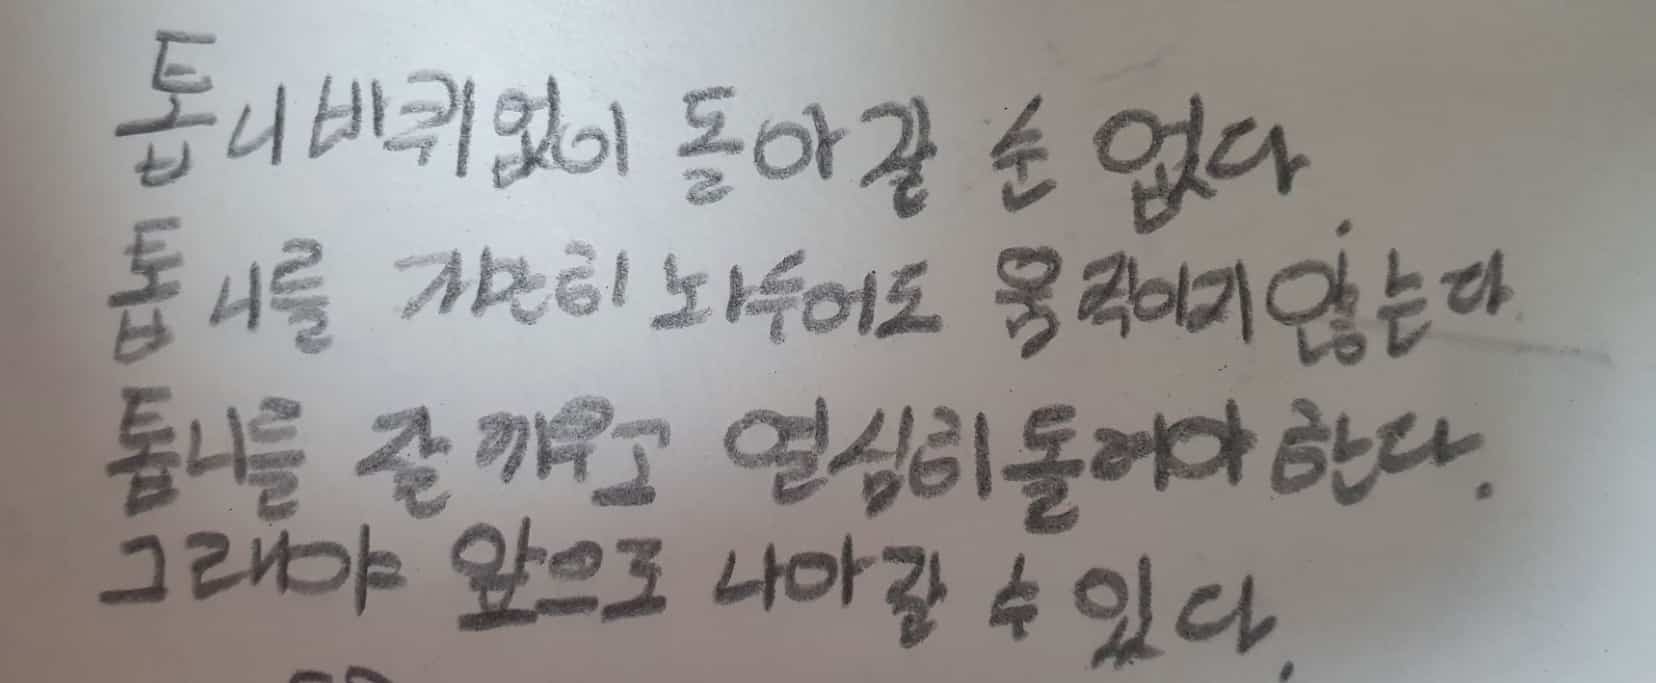 톱니바퀴없이 돌아갈 순 없다.
톱니를 가만히 놔두어도 움직이지 않는다
톱니를 잘 끼우고 열심히 돌려야 한다.
그래야 앞으로 나아갈 수 있다.